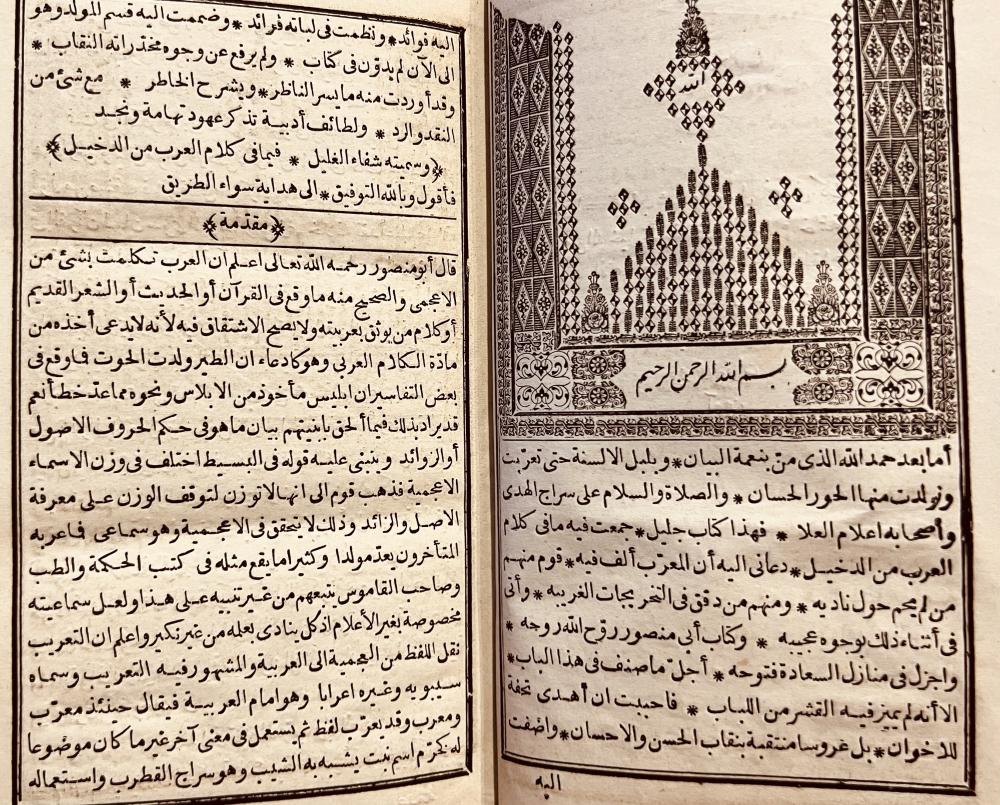 الله
بسم الله الرحمن الرحيم
أما بعد حمد الله الذى من بنعمة البيان * وبلبل الالسنة حتى تعربت
وتولدت منها الحور الحسان * والصلاة والسلام على سراج الهدى
وأصحابه اعلام العلا * فهذا كتاب جليل * جمعت فيه ما فى كلام
العرب من الدخيل * دعانى اليه أن المعرب ألف فيه * قوم منهم
من لم يحم حول ناديه * ومنهم من دقق فى التخريجات الغريبه * وأتى
فى أثناء ذلك بوجوه عجيبه * وكتاب أبى منصور روّح الله روحه *
واجزل فى منازل السعادة فتوحه * أجلّ ما صنف فى هذا الباب *
الا أنه لم يميز فيه القشر من اللباب * فاحببت ان أهدى تحفة
للاخوان * بل عروسا منتقبة بنقاب الحسن والاحسان * واضفت
اليه
اليه فوائد * ونظمت فى لباته فرائد * وضممت اليه قسم المولد وهو
الى الآن لم يدوّن فى كتاب * ولم يرفع عن وجوه مخدراته النقاب *
وقد أوردت منه ما يسر الناظر * ويشرح الخاطر * مع شئ من
النقد والرد * ولطائف أدبية تذكر عهود تهامة ونجد
﴿وسميته شفاء الغليل * فيما فى كلام العرب من الدخيل﴾
فأقول وبالله التوفيق * الى هداية سواء الطريق
﴿مقدمة﴾
قال أبو منصور رحمه الله تعالى اعلم ان العرب تكلمت بشئ من
الاعجمى والصحيح منه ما وقع فى القرآن أو الحديث أو الشعر القديم
أو كلام من يوثق بعربيته ولا يصح الاشتقاق فيه لأنه لا يدعى أخذه من
مادّة الكلام العربى وهو كادعاء ان الطير ولدت الحوت فما وقع فى
بعض التفاسير ان ابليس مأخوذ من الابلاس ونحوه مما عدّ خطأ نعم
قد يراد بذلك فيما ألحق بابنيتهم بيان ما هو فى حكم الحروف الاصول
أو الزوائد وينبنى عليه قوله فى البسيط اختلف فى وزن الاسماء
الاعجمية فذهب قوم الى انها لا توزن لتوقف الوزن على معرفة
الاصل والزائد وذلك لا يتحقق فى الاعجمية وهو سماعى فما عربه
المتأخرون يعدّ مولدا وكثيرا ما يقع مثله فى كتب الحكمة والطب
وصاحب القاموس يتبعهم من غير تنبيه على هذا ولعل سماعيته
مخصوصة بغير الأعلام اذ كل ينادى بعلمه من غير نكير واعلم ان التعريب
نقل اللفظ من العجمية الى العربية والمشهور فيه التعريب وسماه
سيبويه وغيره اعرابا وهو امام العربية فيقال حينئذ معرّب
ومعرب وقد يعرّب لفظ ثم يستعمل فى معنى آخر غير ما كان موضوعا
له كخرّم اسم نبت يشبه به الشيب وهو سراج القطرب واستعماله